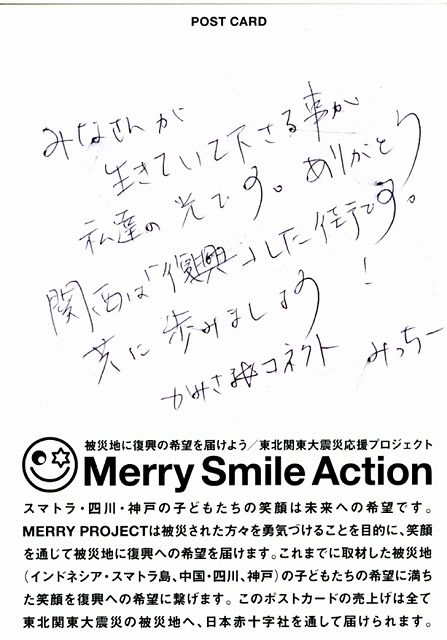 POST CARD
みなさんが
生きていて下さる事が
私達の光です。ありがとう
関西は「復興」した街です。
共に歩みましょう!
コネクト みっちー
被災地に復興の希望を届けよう/東北関東大震災応援プロジェクト
Merry Smile Action
スマトラ・四川・神戸の子どもたちの笑顔は未来への希望です。
MERRY PROJECTは被災された方々を勇気づけることを目的に、笑顔
を通じて被災地に復興への希望を届けます。これまでに取材した被災地
(インドネシア・スマトラ島、中国・四川、神戸)の子どもたちの希望に満ち
た笑顔を復興への希望に繋げます。このポストカードの売上げは全て
東北関東大震災の被災地へ、日本赤十字社を通して届けられます。